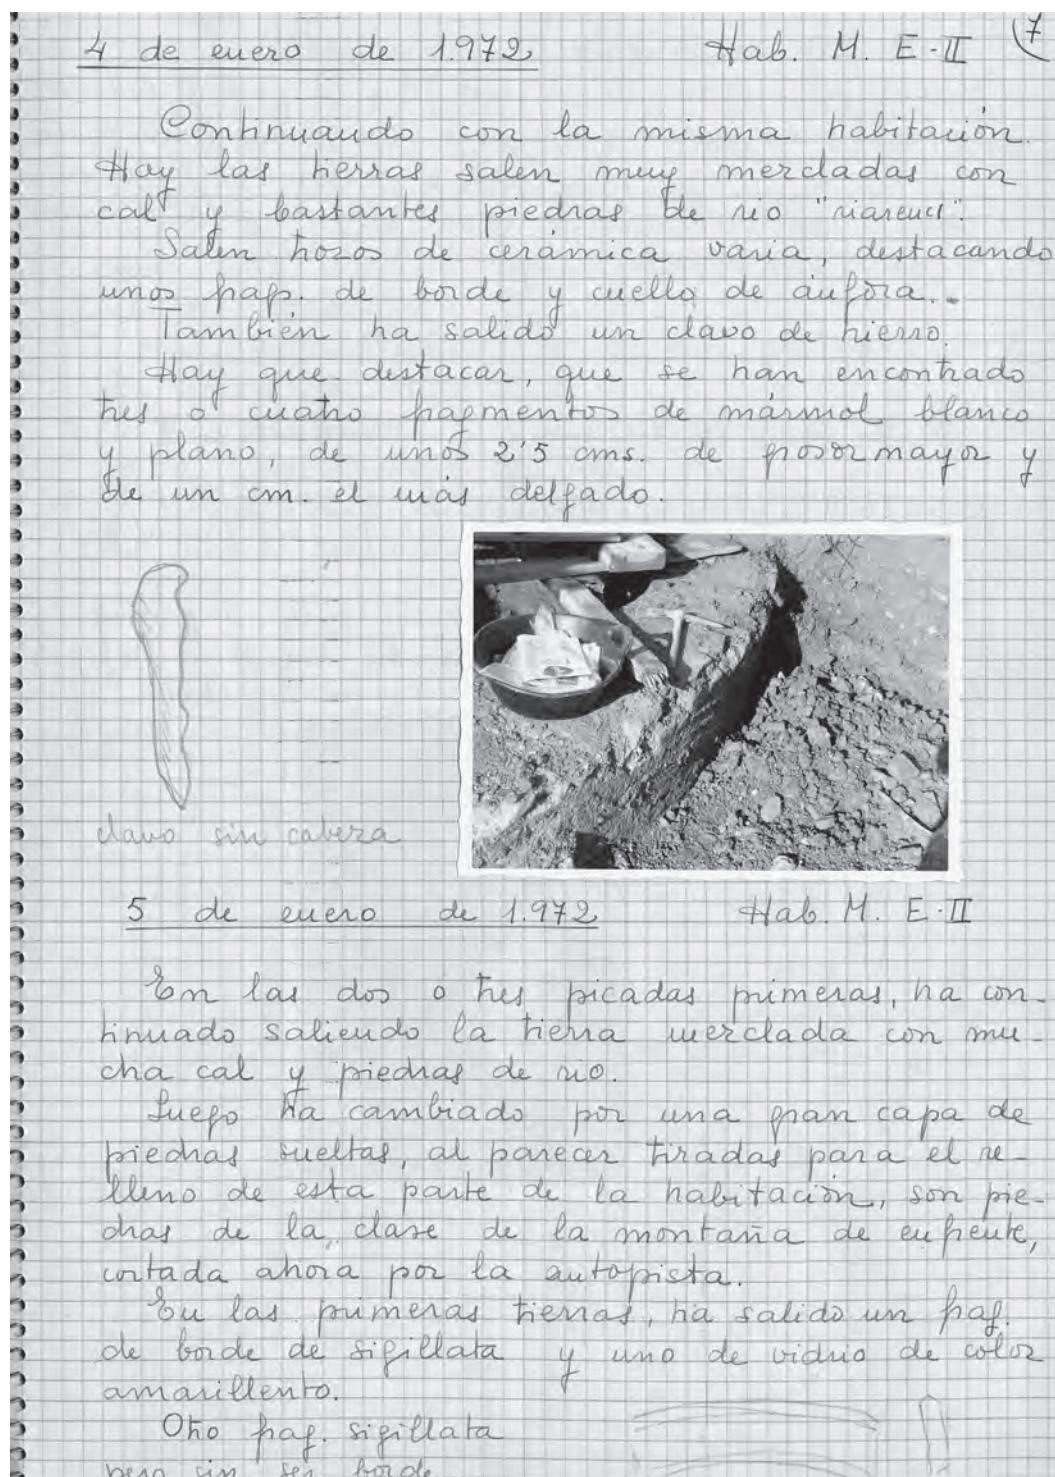 4 de enero de 1.972 Hab. M. E-II 7
Continuando con la misma habitación.
Hoy las tierras salen muy mezcladas con
cal y bastantes piedras de rio
Salen trozos de cerámica varia, destacando
unos frag. de borde y cuello de ánfora.
También ha salido un clavo de hierro.
Hay que destacar, que se han encontrado
tres o cuatro fragmentos de mármol blanco
y plano, de unos 2'5 cms. de grosor mayor y
de un cm. el más delgado.
clavo sin cabeza
5 de enero de 1.972 Hab. M. E-II
En las dos o tres picadas primeras, ha con-
tinuado saliendo la tierra mezclada con mu-
cha cal y piedras de rio.
Luego ha cambiado por una gran capa de
piedras sueltas, al parecer tiradas para el re-
lleno de esta parte de la habitación, son pie-
dras de la clase de la montaña de enfrente,
cortada ahora por la autopista.
En las primeras tierras, ha salido un frag.
de borde de sigillata y uno de vidrio de color
amarillento.
Otro frag. sigillata
pero sin ser borde